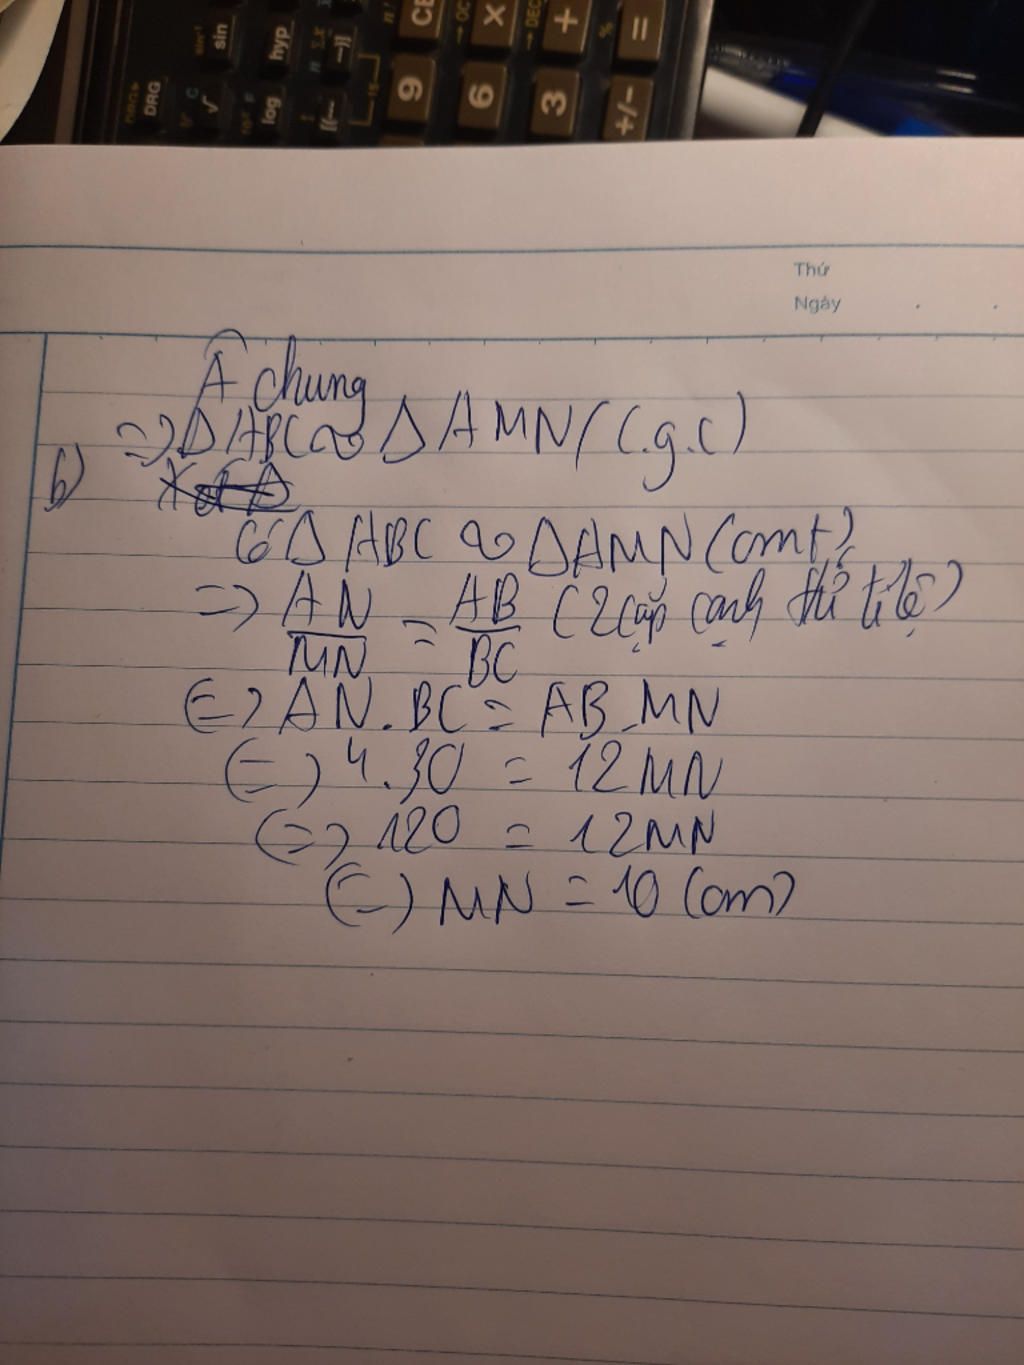 CE
→OC
×
→DEC
+
%
=
sin⁻¹
sin
hyp
DRG
√
log
9
6
3
+/-
Thứ
Ngày
Â chung
=> Δ ABC ∽ Δ AMN (c.g.c)
b)
Có Δ ABC ∽ Δ AMN (cmt)
=> AN/MN = AB/BC (2 cặp cạnh tỉ lệ)
<=> AN.BC = AB.MN
<=> 4.30 = 12MN
<=> 120 = 12MN
<=> MN = 10 (cm)